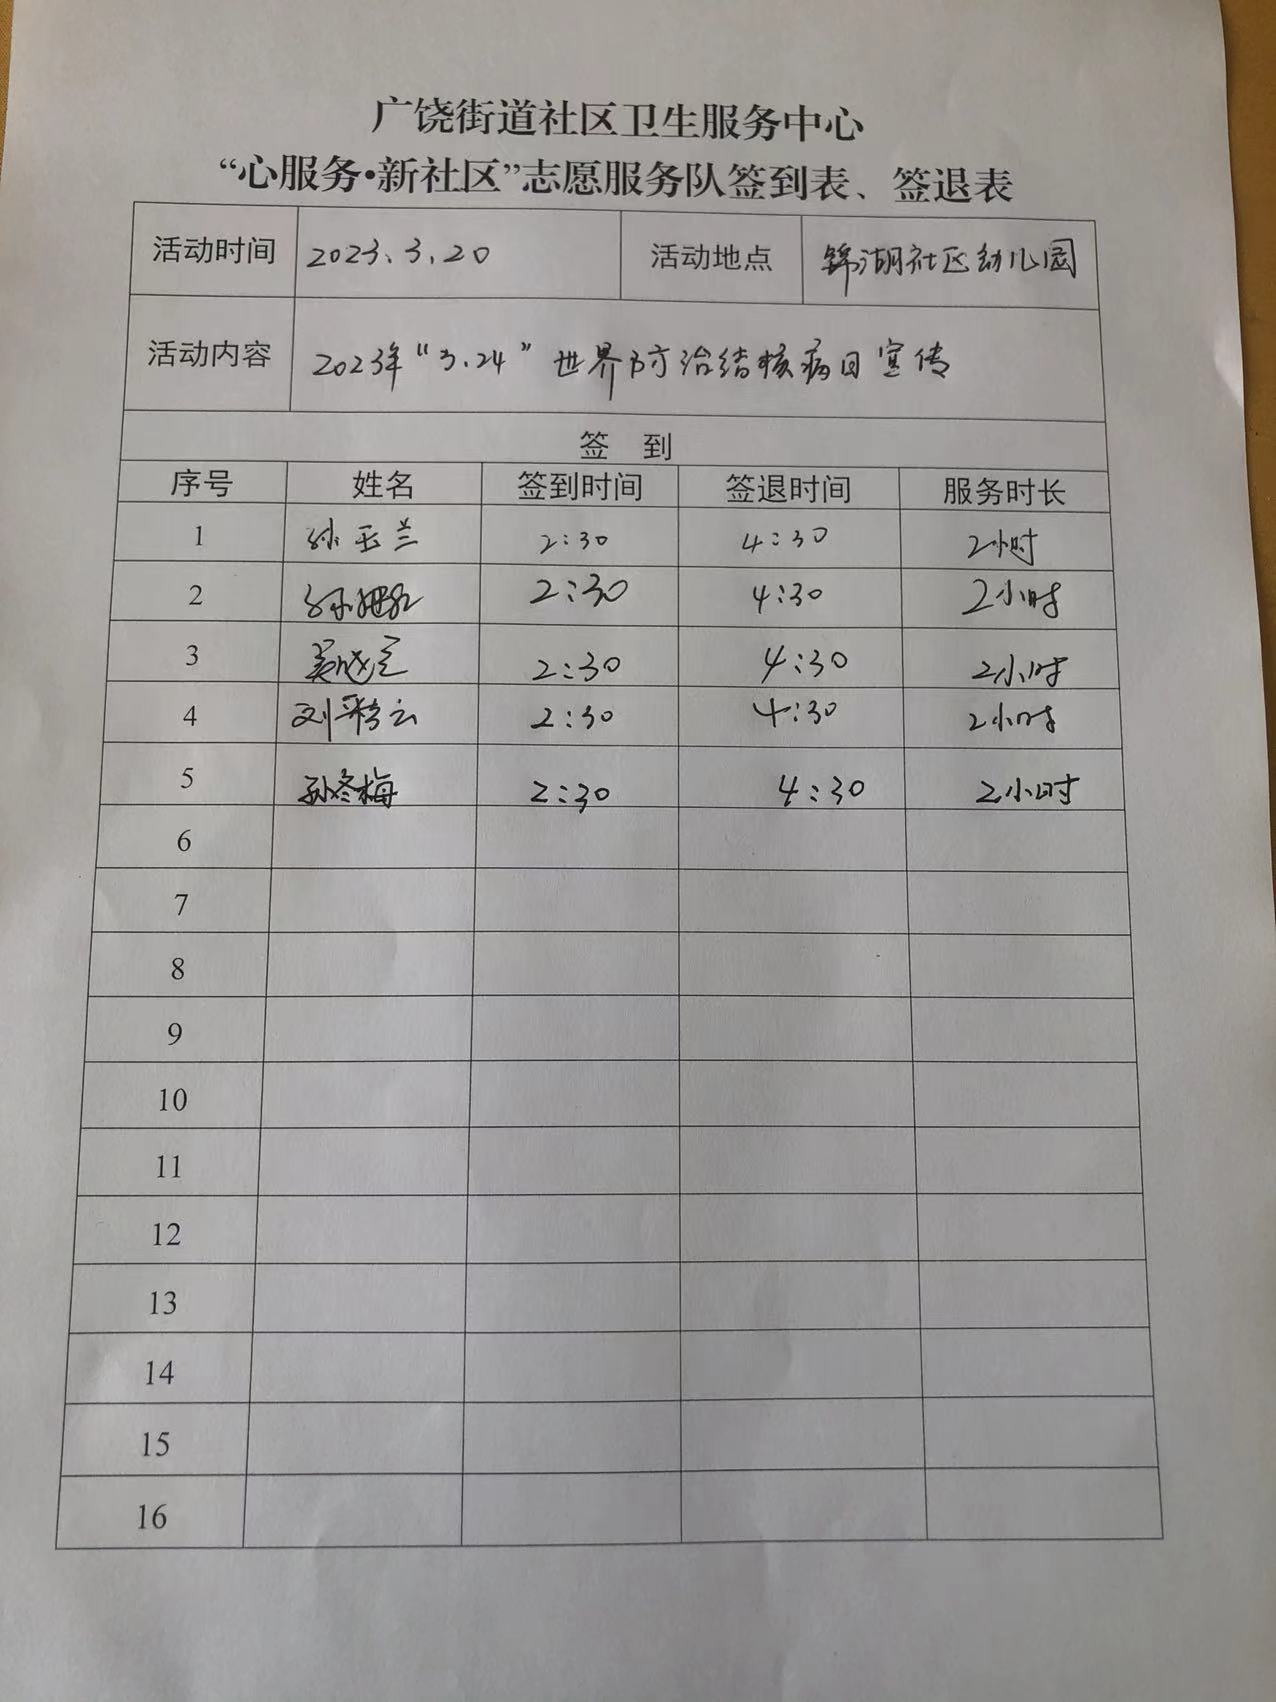 广饶街道社区卫生服务中心
“心服务•新社区”志愿服务队签到表、签退表
活动时间 2023.3.20 活动地点 锦湖社区幼儿园
活动内容 2023年“3.24”世界防治结核病日宣传
签 到
序号 姓名 签到时间 签退时间 服务时长
1 孙玉兰 2:30 4:30 2小时
2 2:30 4:30 2小时
3 2:30 4:30 2小时
4 2:30 4:30 2小时
5 孙冬梅 2:30 4:30 2小时
6
7
8
9
10
11
12
13
14
15
16